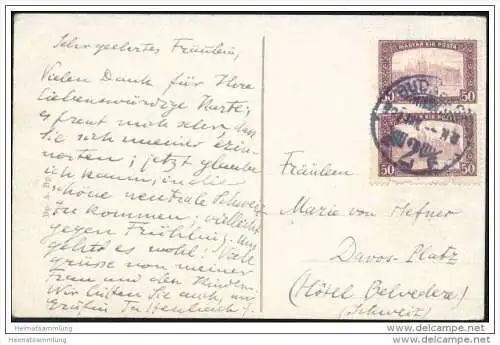 Sehr geehrtes Fräulein,
Vielen Dank für Ihre
liebenswürdige Karte;
es freut mich sehr, dass
Sie sich meiner erin-
; jetzt glaube
ich kaum, in die
schöne neutrale Schweiz
zu können; vielleicht
gegen Frühling. Uns
geht es wohl! Viele
Grüsse von meiner
Frau und den Kindern.
Wir bitten Sie auch, uns
Gräfin
MAGYAR KIR. POSTA
50
50
MAGYAR KIR. POSTA
50
50
BUDA
Fräulein
Marie von Hefner
Davos-Platz
(Hôtel Belvedere)
(Schweiz)
Heimatsammlung
Heimatsammlung
www.delcampe.net